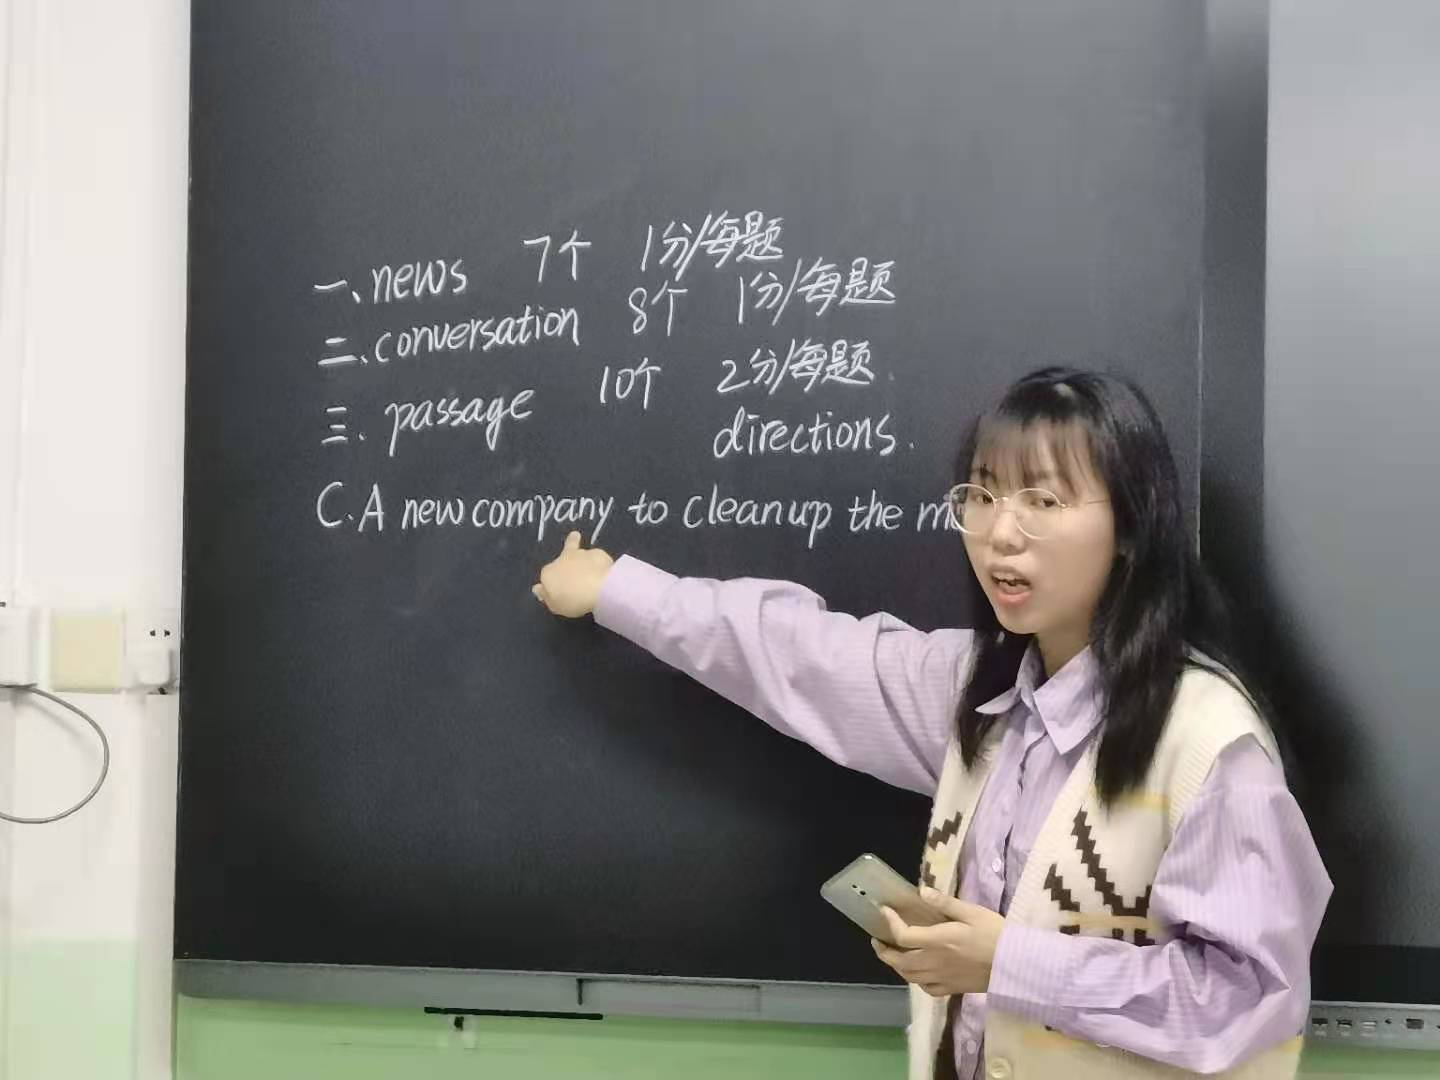 一、news 7个 1分/每题
二、conversation 8个 1分/每题
三. passage 10个 2分/每题.
directions.
C. A new company to clean up the